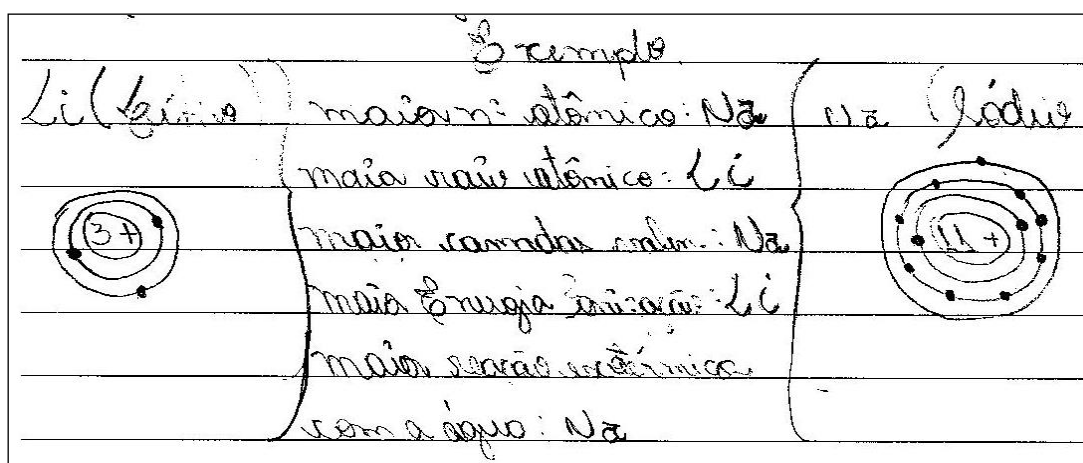 Exemplo
Li (Lítio)
maior nº atômico: Na
maia raio atômico: Li
maior camadas : Na
maia Energia ionização: Li
maior reação exotérmica
com a água: Na
3+
Na (Sódio)
11+